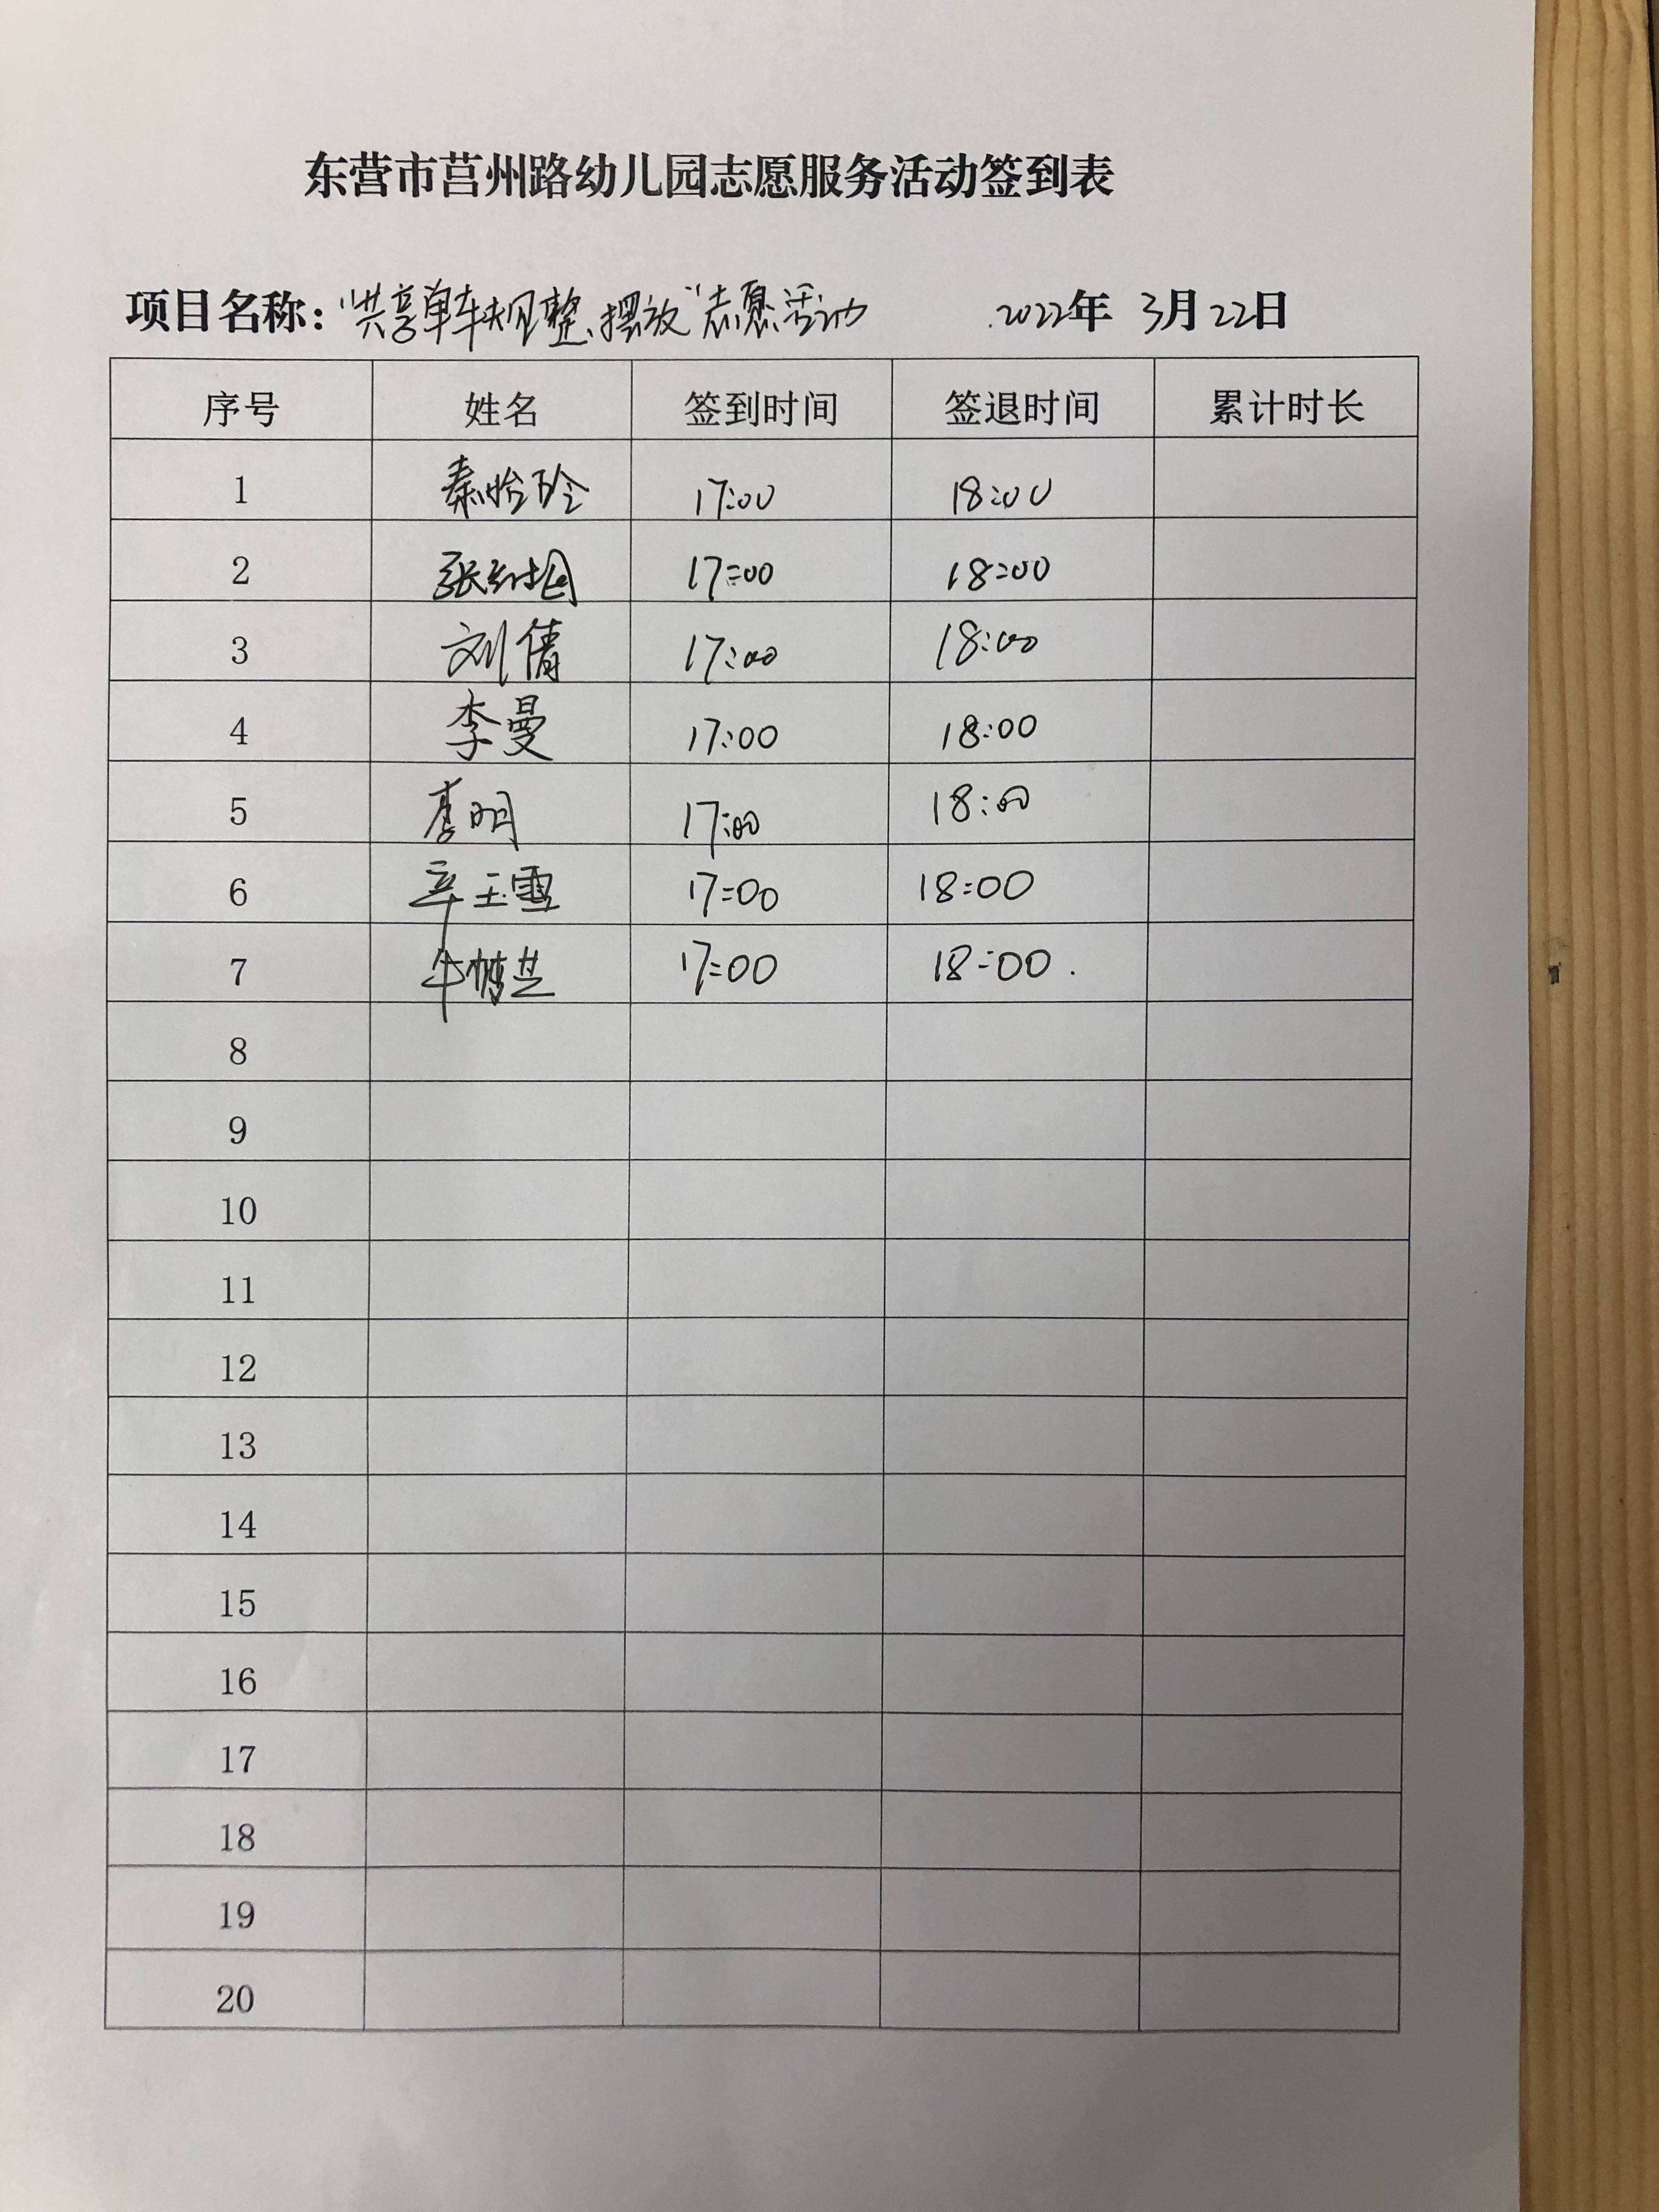 东营市莒州路幼儿园志愿服务活动签到表
项目名称：“共享单车规整、摆放”志愿活动 2022年 3月22日
序号 姓名 签到时间 签退时间 累计时长
1 秦 17:00 18:00
2 张 17:00 18:00
3 刘倩 17:00 18:00
4 李曼 17:00 18:00
5 李明 17:00 18:00
6 辛玉雪 17:00 18:00
7 牛 17:00 18:00
8
9
10
11
12
13
14
15
16
17
18
19
20